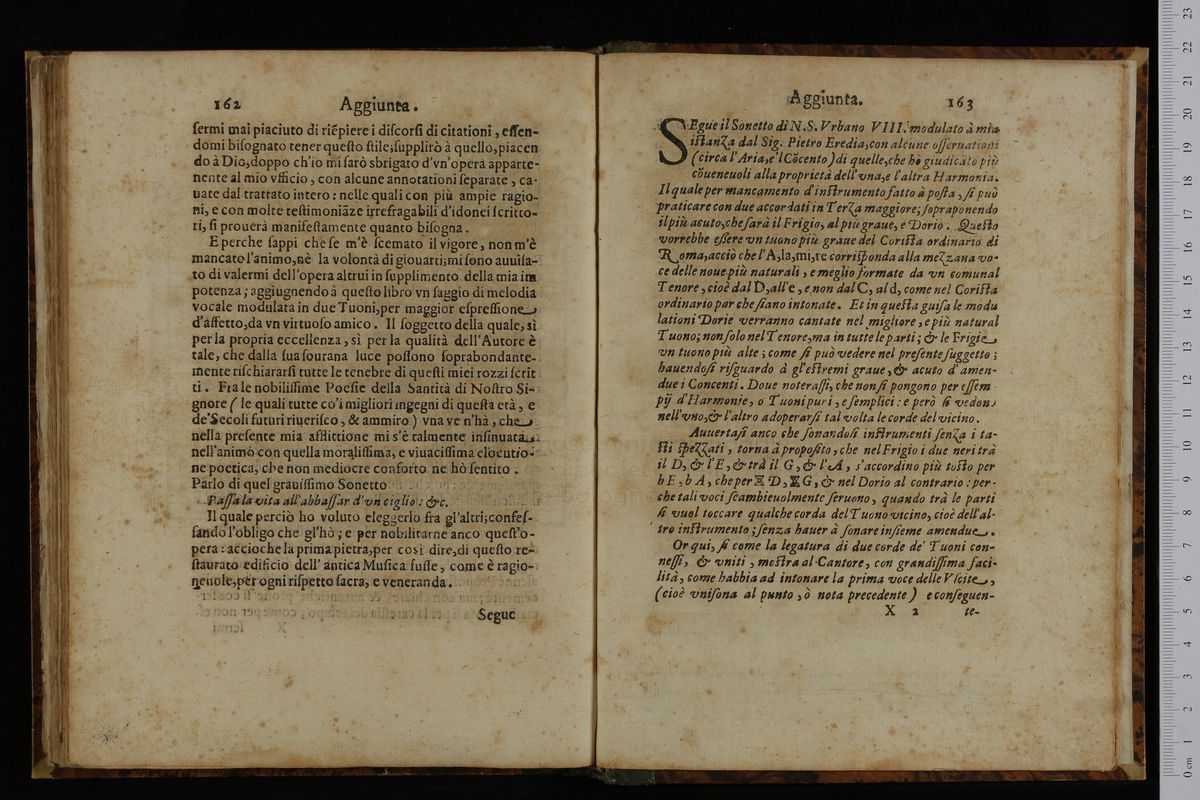 162 Aggiunta.
ſermi mai piaciuto di riẽpiere i diſcorſi di citationi, eſſen-
domi biſognato tener queſto ſtile; ſupplirò à quello, piacen
do à Dio, doppo ch'io mi ſarò sbrigato d'vn'opera apparte-
nente al mio vfficio, con alcune annotationi ſeparate, ca-
uate dal trattato intero: nelle quali con più ampie ragio-
ni, e con molte teſtimoniãze irrefragabili d'idonei ſcritto-
ri, ſi prouerà manifeſtamente quanto biſogna.
E perche ſappi che ſe m'è ſcemato il vigore, non m'è
mancato l'animo, nè la volontà di giouarti; mi ſono auuiſa-
to di valermi dell'opera altrui in ſupplimento della mia im
potenza; aggiugnendo à queſto libro vn ſaggio di melodia
vocale modulata in due Tuoni, per maggior eſpreſſione
d'affetto, da vn virtuoſo amico. Il ſoggetto della quale, sì
per la propria eccellenza, sì per la qualità dell'Autore è
tale, che dalla ſua ſourana luce poſſono ſoprabondante-
mente riſchiararſi tutte le tenebre di queſti miei rozzi ſcrit
ti. Fra le nobiliſſime Poeſie della Santità di Noſtro Si-
gnore (le quali tutte co'i migliori ingegni di queſta età, e
de'Secoli futuri riueriſco, & ammiro) vna ve n'hà, che
nella preſente mia afflittione mi s'è talmente inſinuata
nell'animo con quella moraliſſima, e viuaciſſima elocutio-
ne poetica, che non mediocre conforto ne hò ſentito.
Parlo di quel grauiſſimo Sonetto
Paſſa la vita all'abbaſſar d'vn ciglio: &c.
Il quale perciò ho voluto eleggerlo fra gl'altri; confeſ-
ſando l'obligo che gl'hò; e per nobilitarne anco queſt'o-
pera: accioche la prima pietra, per così dire, di queſto re-
ſtaurato edificio dell'antica Muſica fuſſe, come è ragio-
neuole, per ogni riſpetto ſacra, e veneranda.
Segue
Aggiunta. 163
SEgue il Sonetto di N.S. Vrbano VIII. modulato à mia
iſtanza dal Sig. Pietro Eredia, con alcune oſſeruationi
(circa l'Aria, e'l Cõcento) di quelle, che hò giudicato più
cõueneuoli alla proprietà dell'vna, e l'altra Harmonia.
Il quale per mancamento d'inſtrumento fatto à poſta, ſi può
praticare con due accordati in Terza maggiore; ſopraponendo
il più acuto, che ſarà il Frigio, al più graue, e Dorio. Queſto
vorrebbe eſſere vn tuono più graue del Coriſta ordinario di
Roma, acciò che l'A, la, mi, re corriſponda alla mezzana vo-
ce delle noue più naturali, e meglio formate da vn comunal
Tenore, cioè dal D, all'e, e non dal C, al d, come nel Coriſta
ordinario par che ſiano intonate. Et in queſta guiſa le modu
lationi Dorie verranno cantate nel migliore, e più natural
Tuono; non ſolo nel Tenore, ma in tutte le parti; & le Frigie
vn tuono più alte; come ſi può vedere nel preſente ſuggetto;
hauendoſi riſguardo à gl'eſtremi graue, & acuto d'amen-
due i Concenti. Doue noteraſſi, che non ſi pongono per eſſem
pij d'Harmonie, o Tuoni puri, e ſemplici: e però ſi vedono
nell'vno, & l'altro adoperarſi tal volta le corde del vicino.
Auuertaſi anco che ſonandoſi inſtrumenti ſenza i ta-
ſti ſpezzati, torna à propoſito, che nel Frigio i due neri trà
il D, & l'E, & trà il G, & l'A, s'accordino più toſto per
b E, b A, che per ※ D, ※ G, & nel Dorio al contrario: per-
che tali voci ſcambieuolmente ſeruono, quando trà le parti
ſi vuol toccare qualche corda del Tuono vicino, cioè dell'al-
tro inſtrumento; ſenza hauer à ſonare inſieme amendue.
Or qui, ſi come la legatura di due corde de' Tuoni con-
neſſi, & vniti, moſtra al Cantore, con grandiſſima faci-
lità, come habbia ad intonare la prima voce delle Vſcite,
(cioè vniſona al punto, ò nota precedente) e conſeguen-
X 2 te-
23
22
21
20
19
18
17
16
15
14
13
12
11
10
9
8
7
6
5
4
3
2
1
0 cm